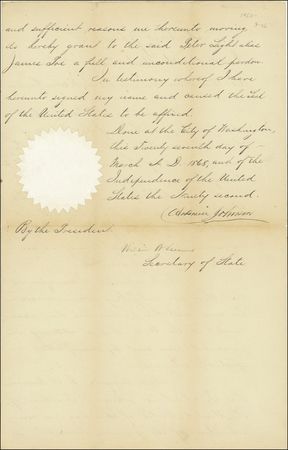 and sufficient reasons me hereunto moving
do hereby grant to the said Peter Light alias
James Lee a full and unconditional pardon.
In testimony whereof I have
hereunto signed my name and caused the Seal
of the United States to be affixed
Done at the City of Washington,
this Twenty seventh day of
March A. D. 1868, and of the
Independence of the United
States the Ninety second.
Andrew Johnson
By the President
Secretary of State